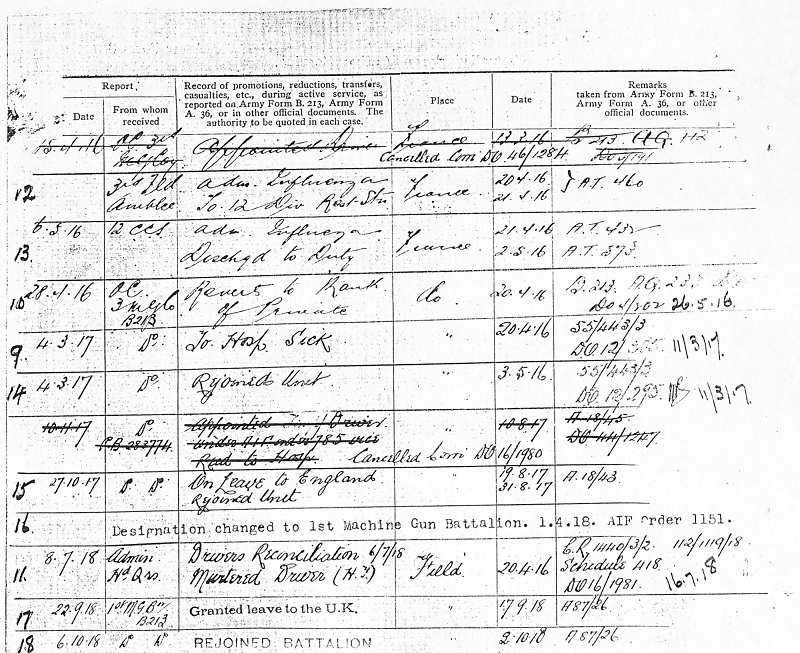 Report
Record of promotions, reductions, transfers, casualties, etc., during active service, as reported on Army Form B. 213, Army Form A. 36, or in other official documents. The authority to be quoted in each case.
Place
Date
Remarks taken from Army Form B. 213, Army Form A. 36, or other official documents.
Date
From whom received
Appointed Driver France 13.3.16
Cancelled Com DO 46/1284
12 3rd Fld Adm. Influenza France 20.4.16 A.T. 460
Amblce To 12 Div Rest Stn 21.4.16
13. 6.5.16 12 CCS Adm Influenza France 21.4.16
Dischgd to Duty 2.5.16 A.T. 573
28.4.16 O.C. Reverts to Rank Do 20.4.16 B.213. A.G.
B213 of Private 26.5.16
9 4.3.17 Do To Hosp Sick " 20.4.16 55/443/3
DO 12/ 11/3/17
14 4.3.17 Do Rejoined Unit " 3.5.16 55/443/3
DO 12/295 11/3/17
10.11.17 Do Appointed Driver 10.8.17 A.18/45
Read to Hosp. Cancelled Com DO 16/1980
15 27.10.17 Do Do On Leave to England 19.8.17 A.18/43
Rejoined Unit 31.8.17
16 Designation changed to 1st Machine Gun Battalion. 1.4.18. AIF Order 1151.
11 8.7.18 Admin Drivers Reconciliation 6/7/18 Field 20.4.16 E.R. 1440/3/2. 112/1119/18
Hd Qrs Mustered Driver (H.T.) Schedule 418
DO 16/1981. 16.7.18
17 22.9.18 1st M.G.Bn Granted leave to the U.K. " 17.9.18 A87/26
B213
18 6.10.18 Do Do REJOINED BATTALION " 2.10.18 A87/26